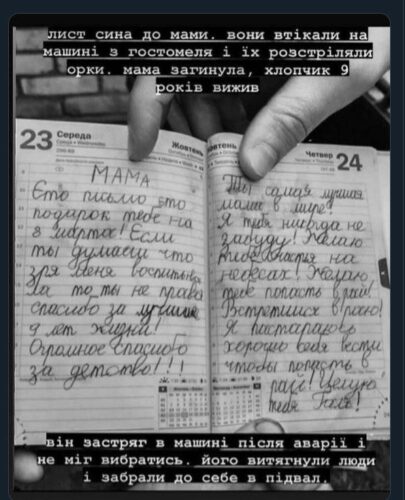 лист сина до мами. вони втікали на
машині з гостомеля і їх розстріляли
орки. мама загинула, хлопчик 9
років вижив
23 Середа
Жовтень
овтень
Четвер 24
МАМА
Это письмо это
подарок тебе на
8 марта! Если
ты думаеш что
зря меня воспитывала
за то ты не права
спасибо за лучшие
9 лет жизни!
Огромное спасибо
за детство!!!
Ты самая лучшая
мама в мире!
Я тебя никогда не
забуду! Желаю
тебе счастя на
небесах! Желаю
тебе попасть в рай!
Встретимся в раю!
Я пастараюсь
хорошо себя вести
чтобы попасть в
рай! Целую
тебя
він застряг в машині після аварії і
не міг вибратись. його витягнули люди
і забрали до себе в підвал.